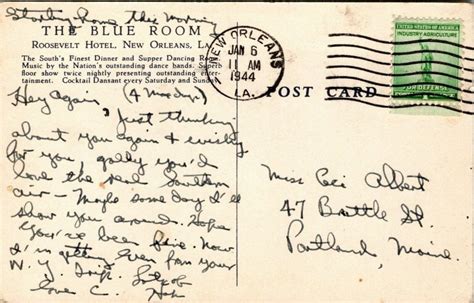 Starting Home this Morning
THE BLUE ROOM
ROOSEVELT HOTEL, NEW ORLEANS, LA.
The South's Finest Dinner and Supper Dancing Room
Music by the Nation's outstanding dance bands. Superb
floor show twice nightly presenting outstanding enter-
tainment. Cocktail Dansant every Saturday and Sunday
Hey Again, (4 more days)
Just thinking
about you again & wishing
for you, golly you'd
love the real Southern
air - Maybe some day I'll
show you around. Hope
you've been fine. Now
I'm getting even from your
N.Y. Trip.
Love C.
NEW ORLEANS
JAN 6
11 AM
1944
LA.
UNITED STATES OF AMERICA
INDUSTRY AGRICULTURE
FOR DEFENSE
POST CARD
Miss Ceci Albert
47 Brattle St.
Portland, Maine.